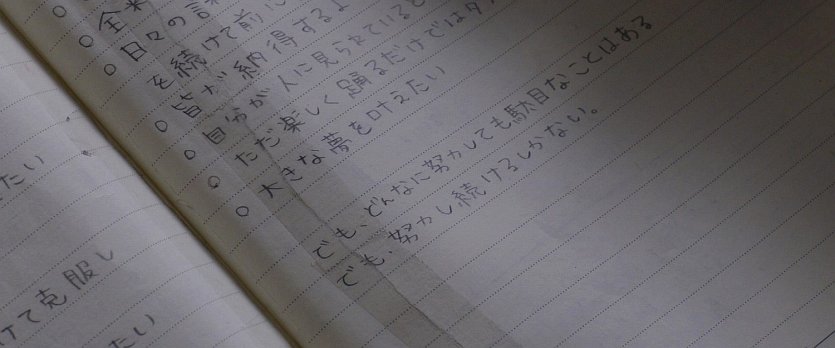 たい
けて克服し
たい
○全
○日々の
を続けて前に
○皆が納得するよ
○自分が人に見られていると
○ただ楽しく踊るだけではダ
○大きな夢を叶えたい
でも、どんなに努力しても駄目なことはある
でも、努力し続けるしかない。